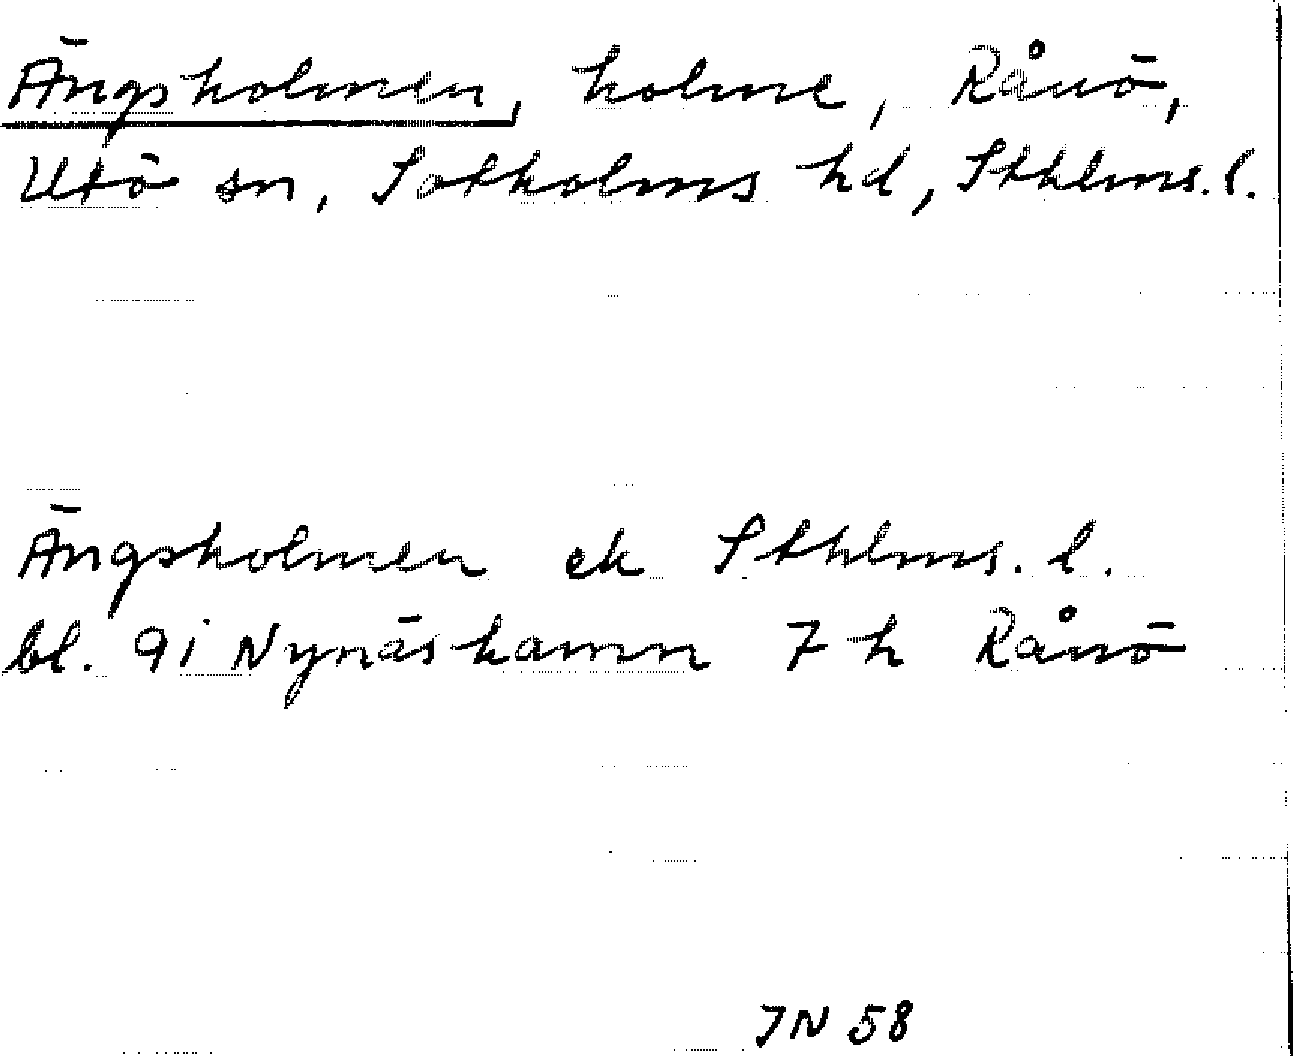 Ängsholmen, holme, Rånö,
Utö sn, Sotholms hd, Sthlms. l.
Ängsholmen ek Sthlms. l.
bl. 91 Nynäshamn 7 h Rånö
JN 58